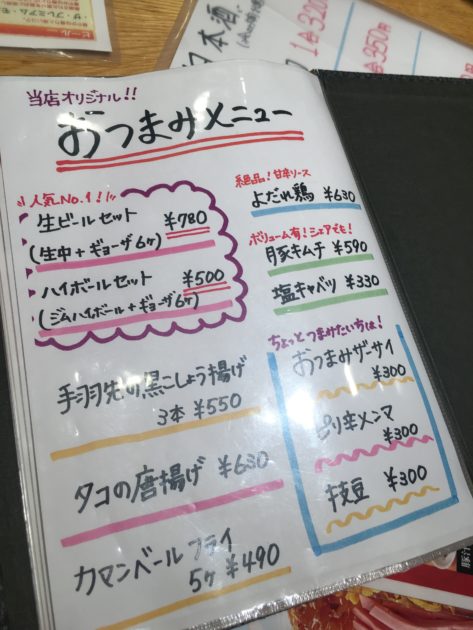 当店オリジナル!!
おつまみメニュー
人気No.1!
生ビールセット ¥780
(生中+ギョーザ6ヶ)
ハイボールセット ¥500
(ジムハイボール+ギョーザ6ヶ)
手羽先の黒こしょう揚げ
3本 ¥550
タコの唐揚げ ¥630
カマンベールフライ
5ヶ ¥490
絶品!甘辛ソース
よだれ鶏 ¥630
ボリューム有!シェアでも!
豚キムチ ¥590
塩キャベツ ¥330
ちょっとつまみたい方は!
おつまみザーサイ
¥300
ピリ辛メンマ
¥300
枝豆 ¥300
ビール
ザ・プレミアム・モ
日本酒
1合320
1合350円